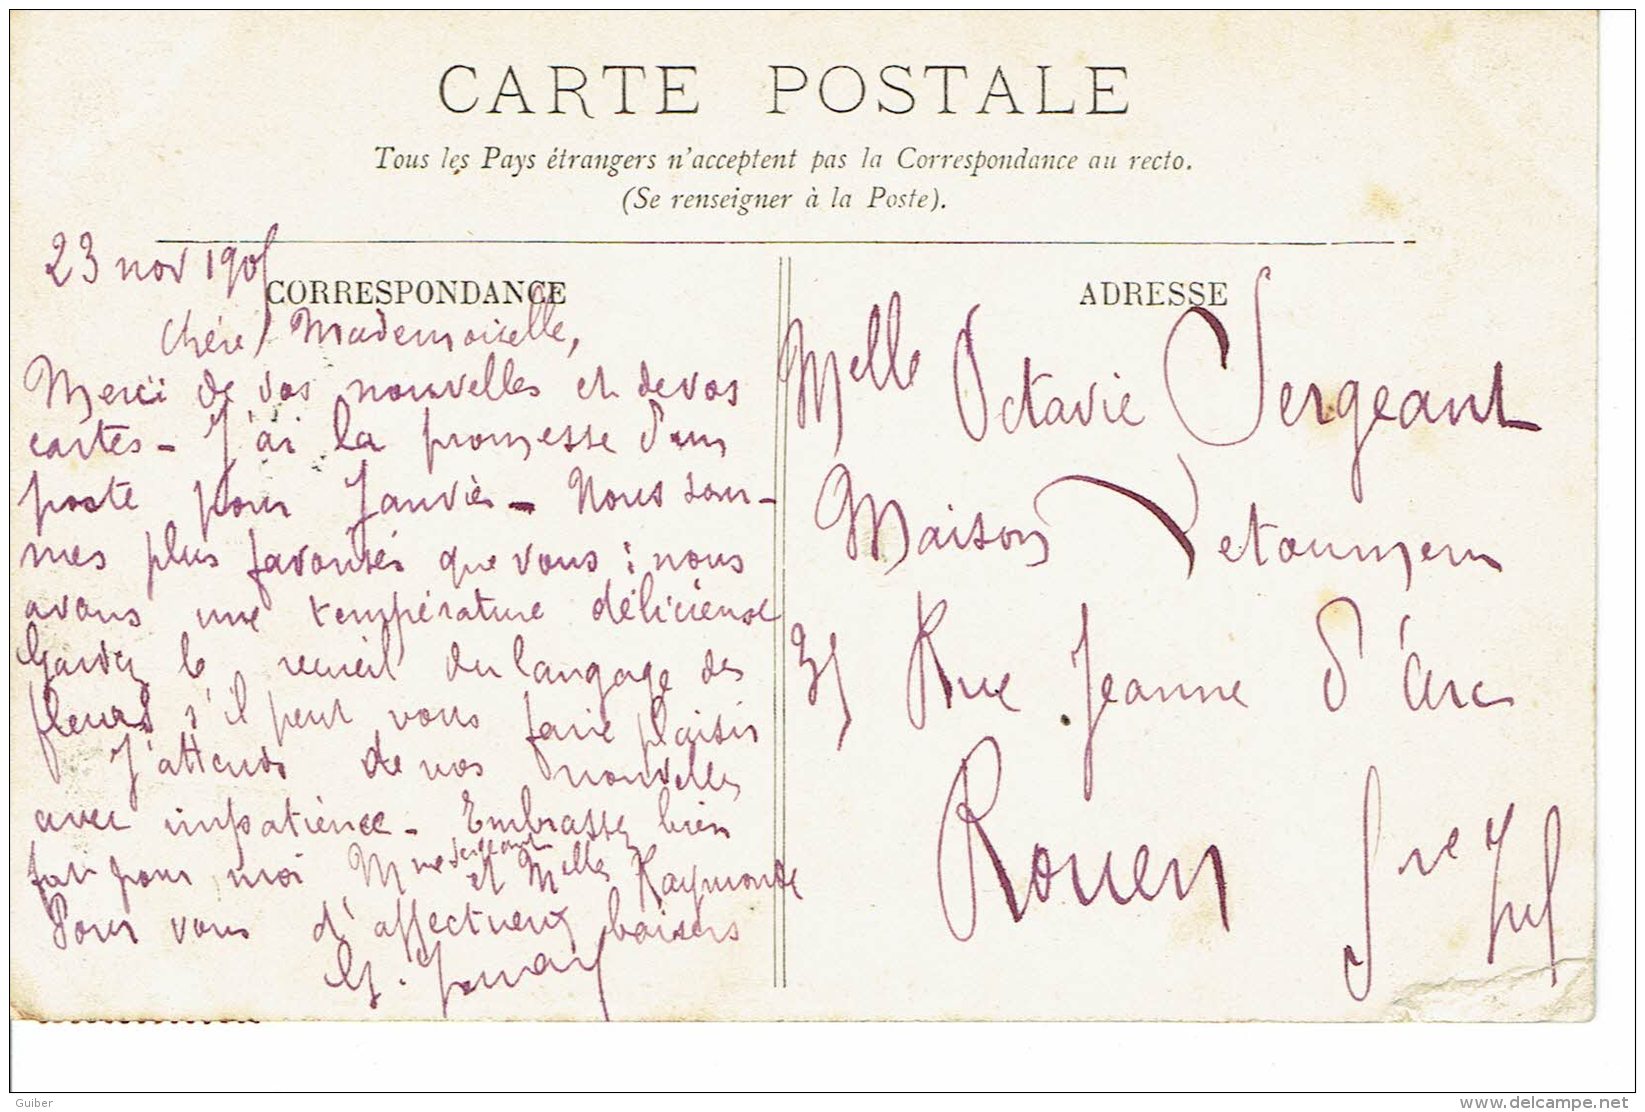 CARTE POSTALE
Tous les Pays étrangers n'acceptent pas la Correspondance au recto.
(Se renseigner à la Poste).
CORRESPONDANCE
23 nov 1905
Chère Mademoiselle,
Merci de vos nouvelles et de vos
cartes - J'ai la promesse d'un
poste pour Janvier - Nous som-
mes plus favorisés que vous : nous
avons une température délicieuse
Gardez le recueil du langage des
fleurs s'il peut vous faire plaisir
J'attends de vos nouvelles
avec impatience - Embrassez bien
fort pour moi Mme Sergeant et Melles Raymonde
Pour vous d'affectueux baisers
G.
ADRESSE
Melle Octavie Sergeant
Maison Letourneur
35 Rue Jeanne d'Arc
Rouen Sre Inf
Guiber
www.delcampe.net